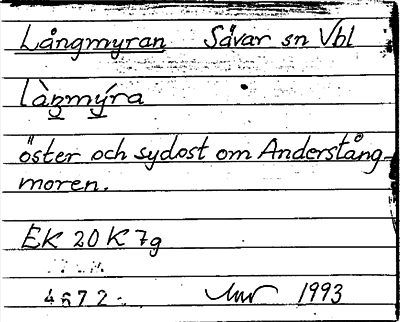 Långmyran Sävar sn Vbl
làŋmý̱ra
öster och sydost om Anderstång-
moren.
EK 20 K 7g
4672 1993